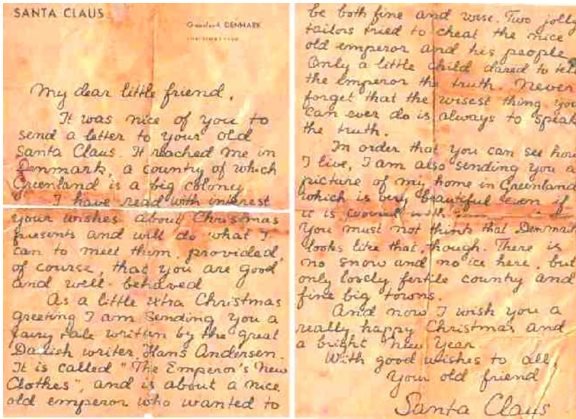 SANTA CLAUS
Greenland, DENMARK
My dear little friend.
It was nice of you to
send a letter to your old
Santa Claus. It reached me in
Denmark, a country of which
Greenland is a big colony
I have read with interest
your wishes about Christmas
presents and will do what I
can to meet them, provided,
of course, that you are good
and well-behaved
As a little extra Christmas
greeting I am sending you a
fairy tale written by the great
Danish writer, Hans Andersen.
It is called "The Emperor's New
Clothes", and is about a nice
old emperor who wanted to
be both fine and wise. Two jolly
tailors tried to cheat the nice
old emperor and his people
Only a little child dared to tell
the emperor the truth. Never
forget that the wisest thing you
can ever do is always to speak
the truth.
In order that you can see how
I live, I am also sending you a
picture of my home in Greenland
which is very beautiful even if
it is covered with
You must not think that Denmark
looks like that, though. There is
no snow and no ice here, but
only lovely fertile country and
fine big towns.
And now I wish you a
really happy Christmas and
a bright New Year
With good wishes to all,
Your old friend
Santa Claus